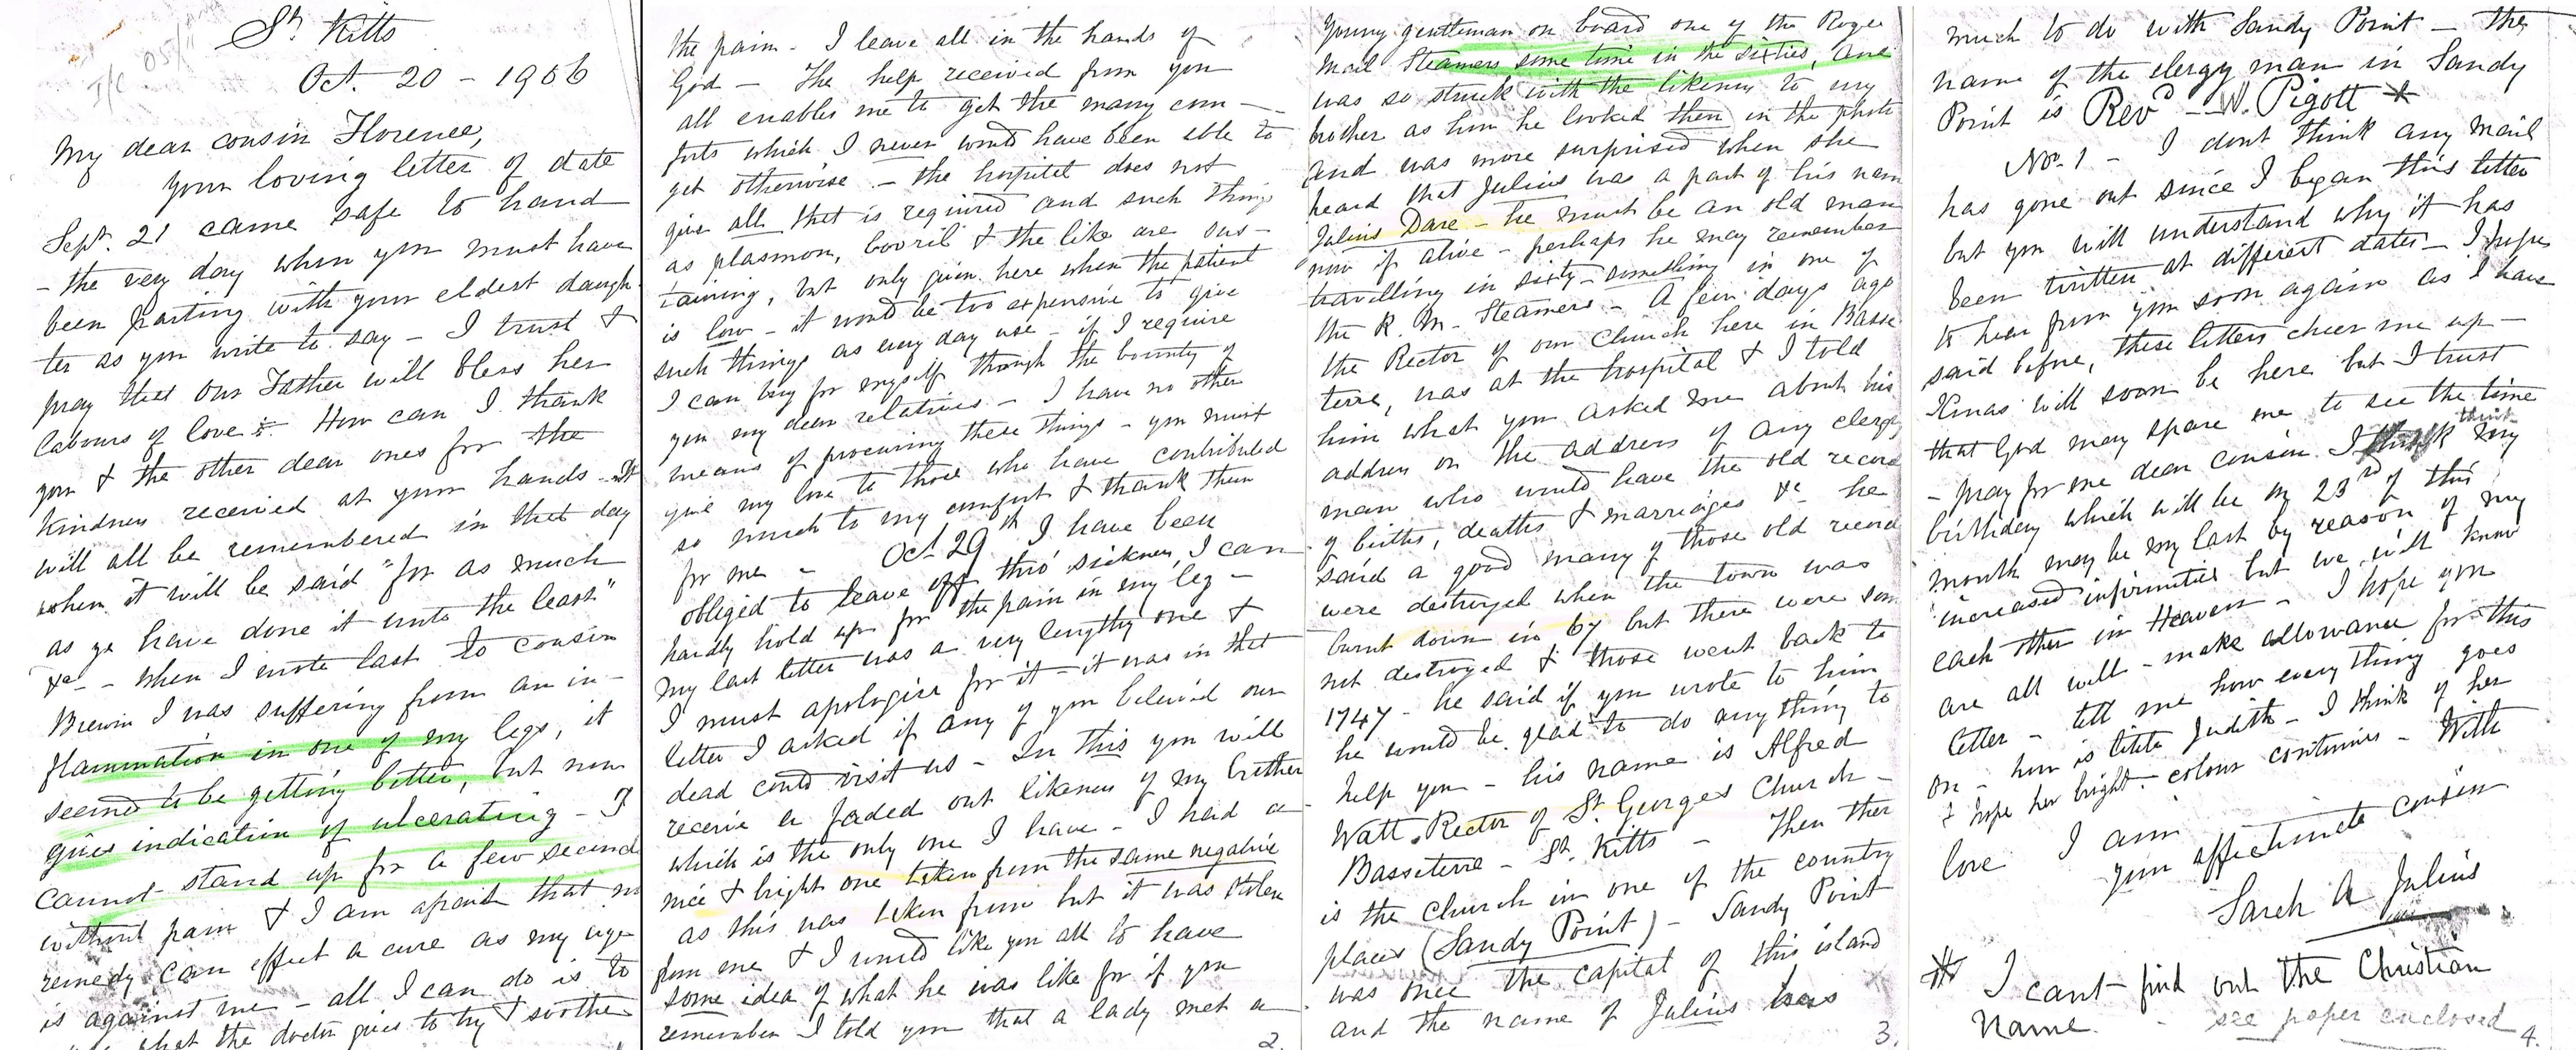 St. Kitts
Oct. 20 - 1906
My dear cousin Florence,
your loving letter of date
Sept. 21 came safe to hand
- the very day when you must have
been parting with your eldest daugh-
ter as you write to say - I trust &
pray that Our Father will bless her
labours of love. How can I thank
you & the other dear ones for the
kindness received at your hands - It
will all be remembered in that day
when it will be said "for as much
as ye have done it unto the least"
&c - - When I wrote last to cousin
Brewin I was suffering from an in-
flammation in one of my legs, it
seemed to be getting better, but now
gives indication of ulcerating - I
cannot stand up for a few second
without pain & I am afraid that no
remedy can effect a cure as my age
is against me - all I can do is to
what the doctor gives to try & soothe
the pain - I leave all in the hands of
God - The help received from you
all enables me to get the many com-
forts which I never would have been able to
get otherwise - the hospital does not
give all that is required and such things
as plasmon, bovril & the like are sus-
taining, but only given here when the patient
is low - it would be too expensive to give
such things as every day use - if I require
I can buy for myself through the bounty of
you my dear relatives - I have no other
means of procuring these things - you must
give my love to those who have contributed
so much to my comfort & thank them
for me - Oct 29th I have been
obliged to leave off thro' sickness, I can
hardly hold up for the pain in my leg -
My last letter was a very lengthy one &
I must apologise for it - it was in that
letter I asked if any of you believed our
dead could visit us - In this you will
receive a faded out likeness of my brother
which is the only one I have - I had a
nice & bright one taken from the same negative
as this was taken from but it was stolen
from me & I would like you all to have
some idea of what he was like for if you
remember I told you that a lady met a
2.
young gentleman on board one of the Royal
Mail Steamers some time in the sixties, and
was so struck with the likeness to my
brother as him he looked then in the photo
and was more surprised when she
heard that Julius was a part of his name
Julius Dare - he must be an old man
now if alive - perhaps he may remember
travelling in sixty-something in one of
the R. M. Steamers - A few days ago
the Rector of our Church here in Basse
terre, was at the hospital & I told
him what you asked me about his
address or the address of any clergy
man who would have the old record
of births, deaths & marriages &c he
said a good many of those old record
were destroyed when the town was
burnt down in 67 but there were some
not destroyed & those went back to
1747 - he said if you wrote to him
he would be glad to do anything to
help you - his name is Alfred
Watt. Rector of St. Georges Church -
Basseterre - St. Kitts - Then ther
is the church in one of the country
places (Sandy Point) - Sandy Point
was once the capital of this island
and the name of Julius has
3.
much to do with Sandy Point - The
name of the clergy man in Sandy
Point is Revd - W. Pigott *
No. 1 - I dont think any Mail
has gone out since I began this letter
but you will understand why it has
been written at different dates - I hope
to hear from you soon again as I have
said before, these letters cheer me up -
Xmas will soon be here but I trust
that God may spare me to see the time
- pray for me dear cousin. I think my
birthday which will be on 23rd of this
month may be my last by reason of my
increased infirmities but we will know
each other in Heaven - I hope you
are all well - make allowance for this
letter - tell me how every thing goes
on - how is little Judith - I think of her
& hope her bright colour continues - With
love I am
your affectionate cousin
Sarah A Julius
* I cant find out the Christian
Name. - see paper enclosed
4.